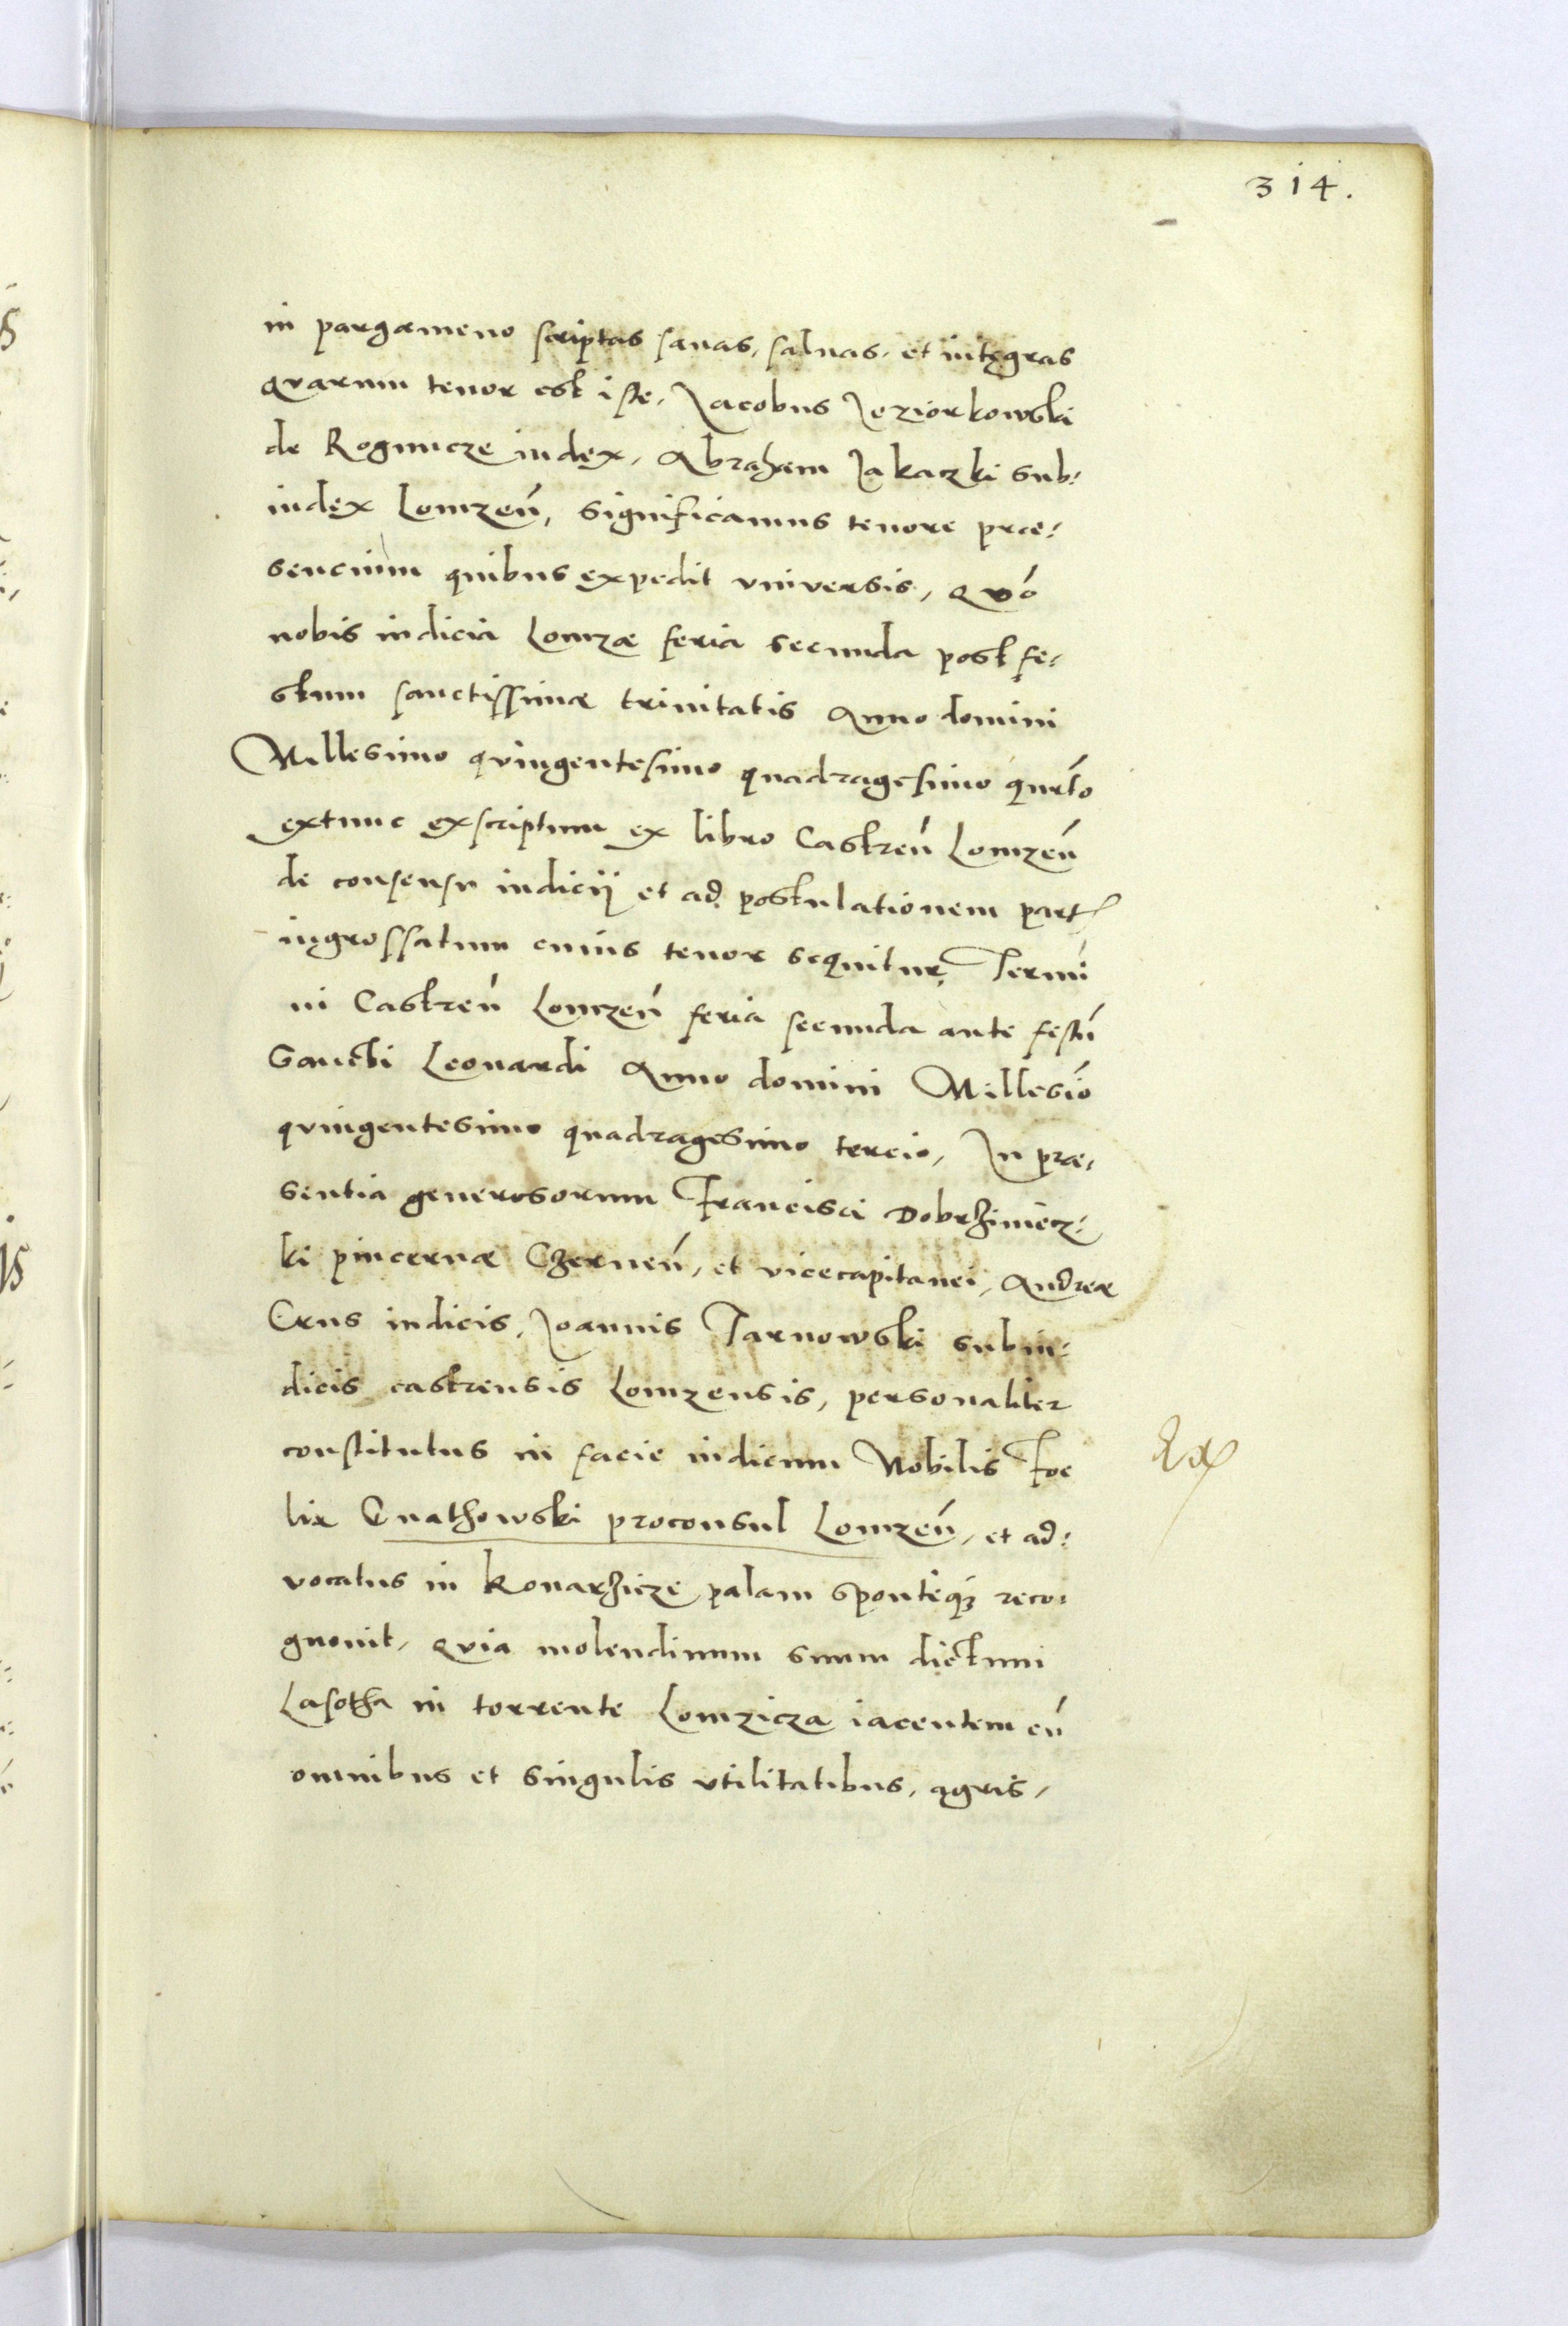 314.
in pargameno scriptas sanas, saluas, et integras
quarum tenor est iste, Jacobus Jeziorkowski
de Rogunicze iudex, Abraham Jakaczki sub-
iudex Lomzeń, significamus tenore præ-
sencium quibus expedit vniuersis, Quó
nobis iudicia Lomzæ feria secunda post fe-
stum sanctissimæ trinitatis Anno domini
Millesimo quingentesimo quadragesimo quarto
extunc exscriptum ex libro Castreń Lomzeń
de consensu iudicij et ad postulationem part
ingrossatum cuius tenor sequitur, Termi
ni Castreń Lomzeń feria secunda ante festū
Sancti Leonardi Anno domini Millesio
quingentesimo quadragesimo tercio, In præ-
sentia generosorum Francisci Dobrziniecz-
ki pincernæ Czerneń, et vicecapitanei, Andreæ
Crus iudicis, Joannis Tarnowski subiu-
dicis castrensis Lomzensis, personaliter
constitutus in facie iudicum Nobilis Foe
lix Gnathowski proconsul Lomzeń, et ad-
vocatus in Konarzicze palam sponteq3 reco-
gnouit, Quia molendinum suum dictum
Lasotha in torrente Lomzicza iacentem cū
omnibus et singulis vtilitatibus, agris,